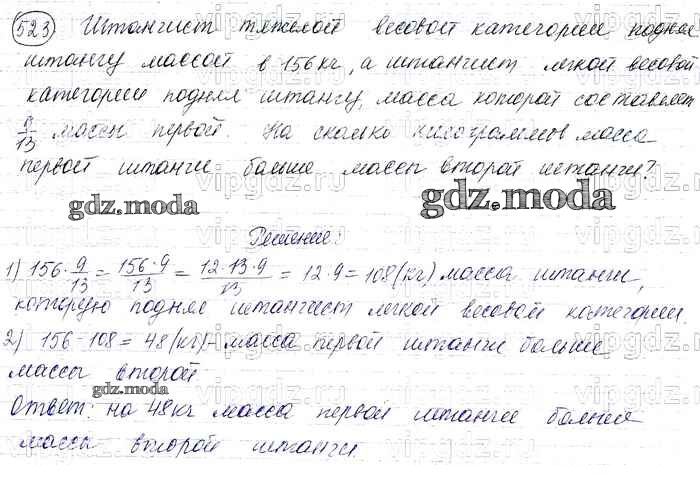 523 Штангист тяжелой весовой категории поднял
штангу массой в 156 кг, а штангист легкой весовой
категории поднял штангу, масса которой составляет
9/13 массы первой. На сколько килограммов масса
первой штанги больше массы второй штанги?
gdz.moda
gdz.moda
Решение:
1) 156 · 9/13 = 156·9/13 = 12·13·9/13 = 12·9 = 108 (кг) масса штанги,
которую поднял штангист легкой весовой категории.
2) 156 - 108 = 48 (кг) - масса первой штанги больше
массы второй
gdz.moda
Ответ: на 48 кг масса первой штанги больше
массы второй штанги.